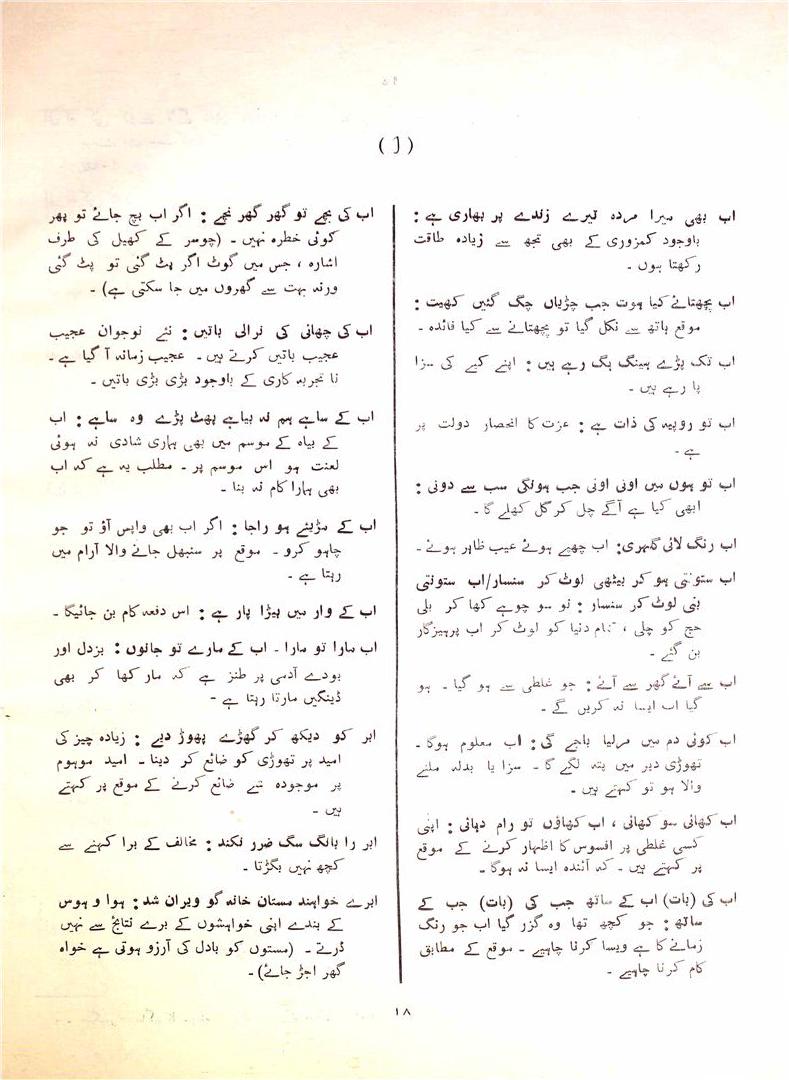 ( ا )
اب بھی میرا مردہ تیرے زندے پر بھاری ہے :
باوجود کمزوری کے بھی تجھ سے زیادہ طاقت
رکھتا ہوں ۔
اب پچھتائے کیا ہوت جب چڑیاں چگ گئیں کھیت :
موقع ہاتھ سے نکل گیا تو پچھتانے سے کیا فائدہ ۔
اب تک پڑے ہینگ ہگ رہے ہیں : اپنے کیے کی سزا
پا رہے ہیں ۔
اب تو روپیہ کی ذات ہے : عزت کا انحصار دولت پر
ہے ۔
اب تو ہوں میں اونی اونی جب ہونگی سب سے دونی :
ابھی کیا ہے آگے چل کر گل کھلے گا ۔
اب رنگ لائی گلہری: اب چھپے ہوئے عیب ظاہر ہوئے ۔
اب ستونتی ہو کر بیٹھی لوٹ کر سنسار/اب ستونتی
بنی لوٹ کر سنسار : نو سو چوہے کھا کر بلی
حج کو چلی ، تمام دنیا کو لوٹ کر اب پرہیزگار
بن گئے ۔
اب سے آئے گھر سے آئے : جو غلطی سے ہو گیا ۔ ہو
گیا اب ایسا نہ کریں گے ۔
اب کوئی دم میں مرلیا باجے گی : اب معلوم ہوگا ۔
تھوڑی دیر میں پتہ لگے گا ۔ سزا یا بدلہ ملنے
والا ہو تو کہتے ہیں ۔
اب کھائی سو کھائی ، اب کھاؤں تو رام دہائی : اپنی
کسی غلطی پر افسوس کا اظہار کرنے کے موقع
پر کہتے ہیں ۔ کہ آئندہ ایسا نہ ہوگا ۔
اب کی (بات) اب کے ساتھ جب کی (بات) جب کے
ساتھ : جو کچھ تھا وہ گزر گیا اب جو رنگ
زمانے کا ہے ویسا کرنا چاہیے ۔ موقع کے مطابق
کام کرنا چاہیے ۔
اب کی بچے تو گھر گھر نچے : اگر اب بچ جائے تو پھر
کوئی خطرہ نہیں ۔ (چوسر کے کھیل کی طرف
اشارہ ، جس میں گوٹ اگر پٹ گئی تو پٹ گئی
ورنہ بہت سے گھروں میں جا سکتی ہے) ۔
اب کی چھائی کی نرالی باتیں : نئے نوجوان عجیب
عجیب باتیں کرتے ہیں ۔ عجیب زمانہ آ گیا ہے ۔
نا تجربہ کاری کے باوجود بڑی بڑی باتیں ۔
اب کے ساہے ہم نہ بیاہے پھٹ پڑے وہ ساہے : اب
کے بیاہ کے موسم میں بھی ہماری شادی نہ ہوئی
لعنت ہو اس موسم پر ۔ مطلب یہ ہے کہ اب
بھی ہمارا کام نہ بنا ۔
اب کے مڑیئے ہو راجا : اگر اب بھی واپس آؤ تو جو
چاہو کرو ۔ موقع پر سنبھل جانے والا آرام میں
رہتا ہے ۔
اب کے وار میں بیڑا پار ہے : اس دفعہ کام بن جائیگا ۔
اب مارا تو مارا ۔ اب کے مارے تو جانوں : بزدل اور
بودے آدمی پر طنز ہے کہ مار کھا کر بھی
ڈینگیں مارتا رہتا ہے ۔
ابر کو دیکھ کر گھڑے پھوڑ دیے : زیادہ چیز کی
امید پر تھوڑی کو ضائع کر دینا ۔ امید موہوم
پر موجودہ شے ضائع کرنے کے موقع پر کہتے
ہیں ۔
ابر را بانگ سگ ضرر نکند : مخالف کے برا کہنے سے
کچھ نہیں بگڑتا ۔
ابرے خواہند مستان خانہ گو ویران شد : ہوا و ہوس
کے بندے اپنی خواہشوں کے برے نتائج سے نہیں
ڈرتے ۔ (مستوں کو بادل کی آرزو ہوتی ہے خواہ
گھر اجڑ جائے) ۔
۱۸